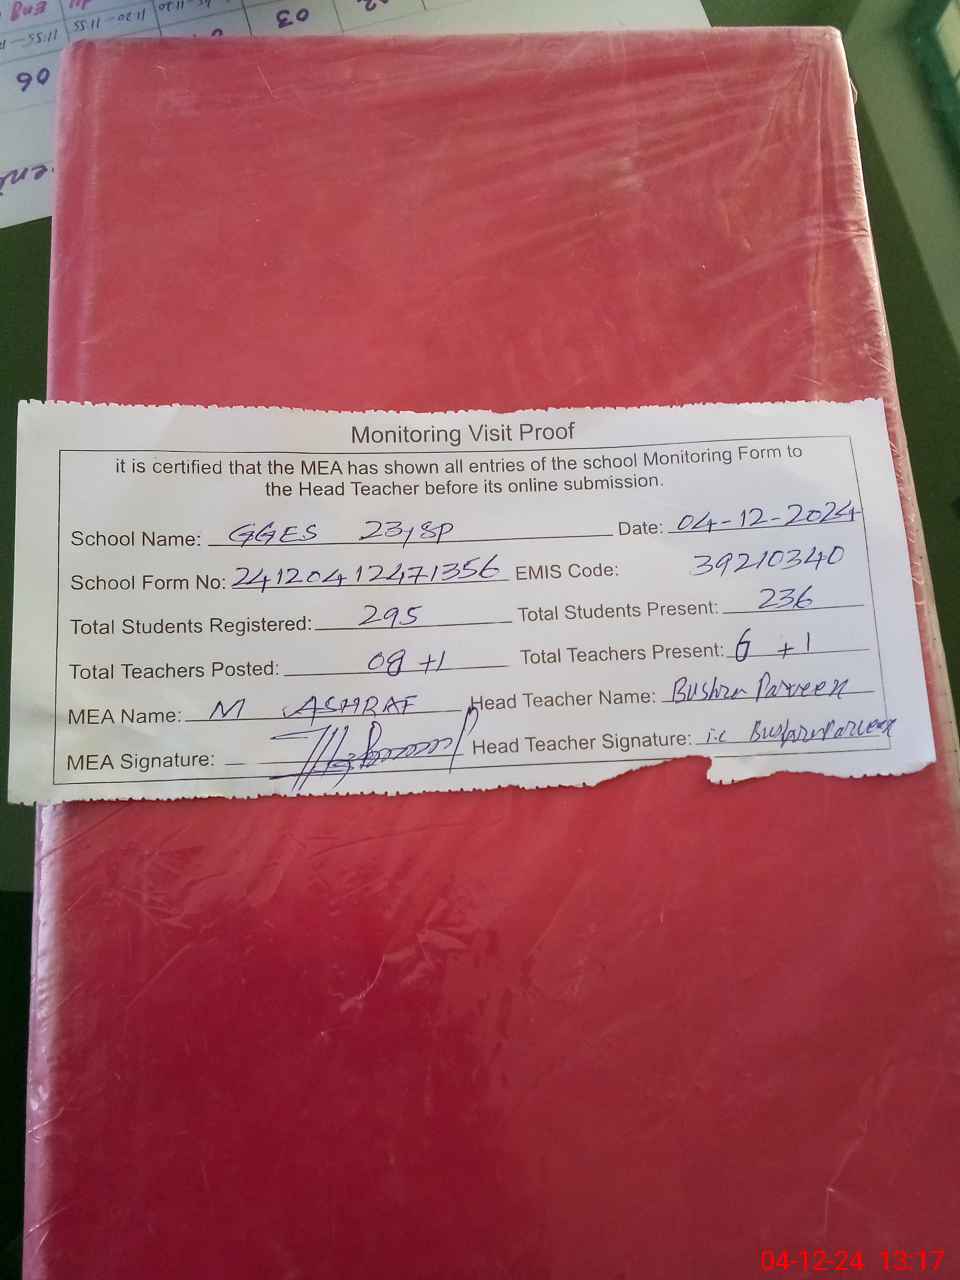 03
11:20 - 11:55
06
Monitoring Visit Proof
it is certified that the MEA has shown all entries of the school Monitoring Form to
the Head Teacher before its online submission.
School Name: GGES 23/SP Date: 04-12-2024
School Form No: 24120412471356 EMIS Code: 39210340
Total Students Registered: 295 Total Students Present: 236
Total Teachers Posted: 08 +1 Total Teachers Present: 6 +1
MEA Name: M ASHRAF Head Teacher Name: Bushra Parveen
MEA Signature: Head Teacher Signature: i.c Bushra Parveen
04-12-24 13:17